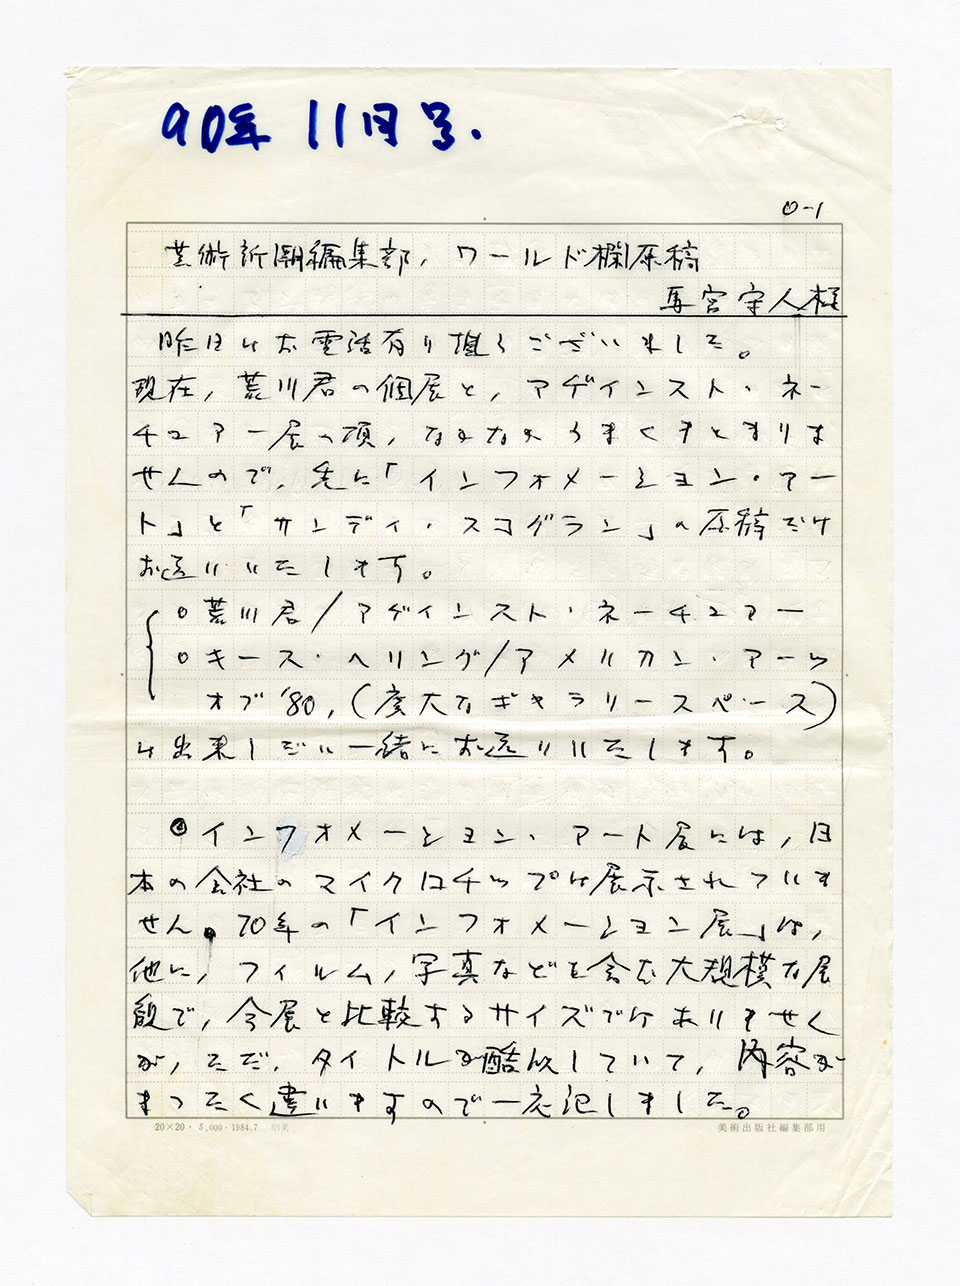 90年 11月号.
0-1
芸術新潮編集部,ワールド欄原稿
馬宮守人様
昨日はお電話有り難うございました。
現在,荒川君の個展と,アゲインスト・ネー
チュアー展の項,なかなかうまくまとまりま
せんので,先に「インフォメーション・アー
ト」と「サンディ・スコグラン」の原稿だけ
お送りいたします。
○荒川君/アゲインスト・ネーチュアー
○キース・ヘリング/アメリカン・アーツ
オブ'80,(広大なギャラリースペース)
は出来しだい一緒にお送りいたします。
◎インフォメーション・アート展には,日
本の会社のマイクロチップは展示されていま
せん。70年の「インフォメーション展」は,
他に,フィルム,写真などを含む大規模な展
観で,今展と比較するサイズではありません
が,ただ,タイトルが酷似していて,内容が
まったく違いますので一応記しました。
20×20・5,000・1984.7 昭美
美術出版社編集部用